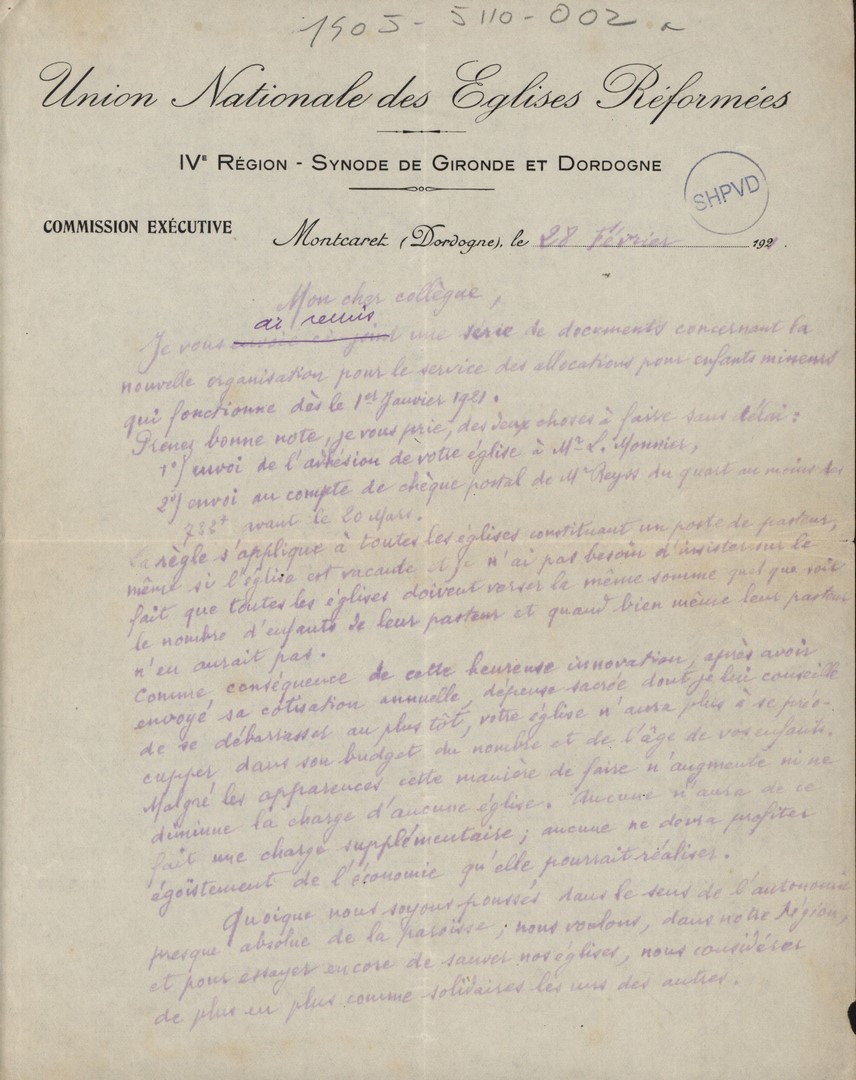 1905-5110-002
Union Nationale des Eglises Réformées
IVe Région - Synode de Gironde et Dordogne
SHPVD
COMMISSION EXÉCUTIVE
Montcaret (Dordogne), le 28 Février 1921.
Mon cher collègue,
ai remis
Je vous envoie ci joint une série de documents concernant la
nouvelle organisation pour le service des allocations pour enfants mineurs
qui fonctionne dès le 1er Janvier 1921.
Prenez bonne note, je vous prie, des deux choses à faire sans délai :
1°) envoi de l'adhésion de votre église à Mr L. Monnier,
2°) envoi au compte de chèque postal de Mr Reyss du quart au moins des
avant le 20 Mars.
La règle s'applique à toutes les églises constituant un poste de pasteur,
même si l'église est vacante et je n'ai pas besoin d'insister sur le
fait que toutes les églises doivent verser la même somme quel que soit
le nombre d'enfants de leur pasteur et quand bien même leur pasteur
n'en aurait pas.
Comme conséquence de cette heureuse innovation, après avoir
envoyé sa cotisation annuelle, dépense sacrée dont je lui conseille
de se débarrasser au plus tôt, votre église n'aura plus à se préo-
cupper dans son budget du nombre et de l'âge de vos enfants.
Malgré les apparences cette manière de faire n'augmente ni ne
diminue la charge d'aucune église. Aucune n'aura de ce
fait une charge supplémentaire ; aucune ne devra profiter
égoïstement de l'économie qu'elle pourrait réaliser.
Quoique nous soyons poussés dans le sens de l'autonomie
presque absolue de la paroisse, nous voulons, dans notre Région,
et pour essayer encore de sauver nos églises, nous considérer
de plus en plus comme solidaires les uns des autres.